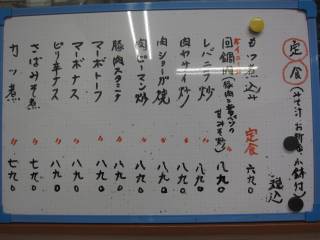 定食(みそ汁 お新香 小鉢付)
税込
もつ煮込み 定食 六九〇
ホイコーロー
回鍋肉(豚肉と黄パツの甘みそ炒) 〃 八九〇
レバニラ炒 〃 八九〇
肉ヤサイ炒 〃 八九〇
肉ショーガ焼 〃 八九〇
肉ピーマン炒 〃 八九〇
豚肉スタミナ 〃 八九〇
マーボトーフ 〃 八九〇
マーボナス 〃 八九〇
ピリ辛ナス 〃 八九〇
さばみそ煮 〃 七九〇
カツ煮 〃 七九〇